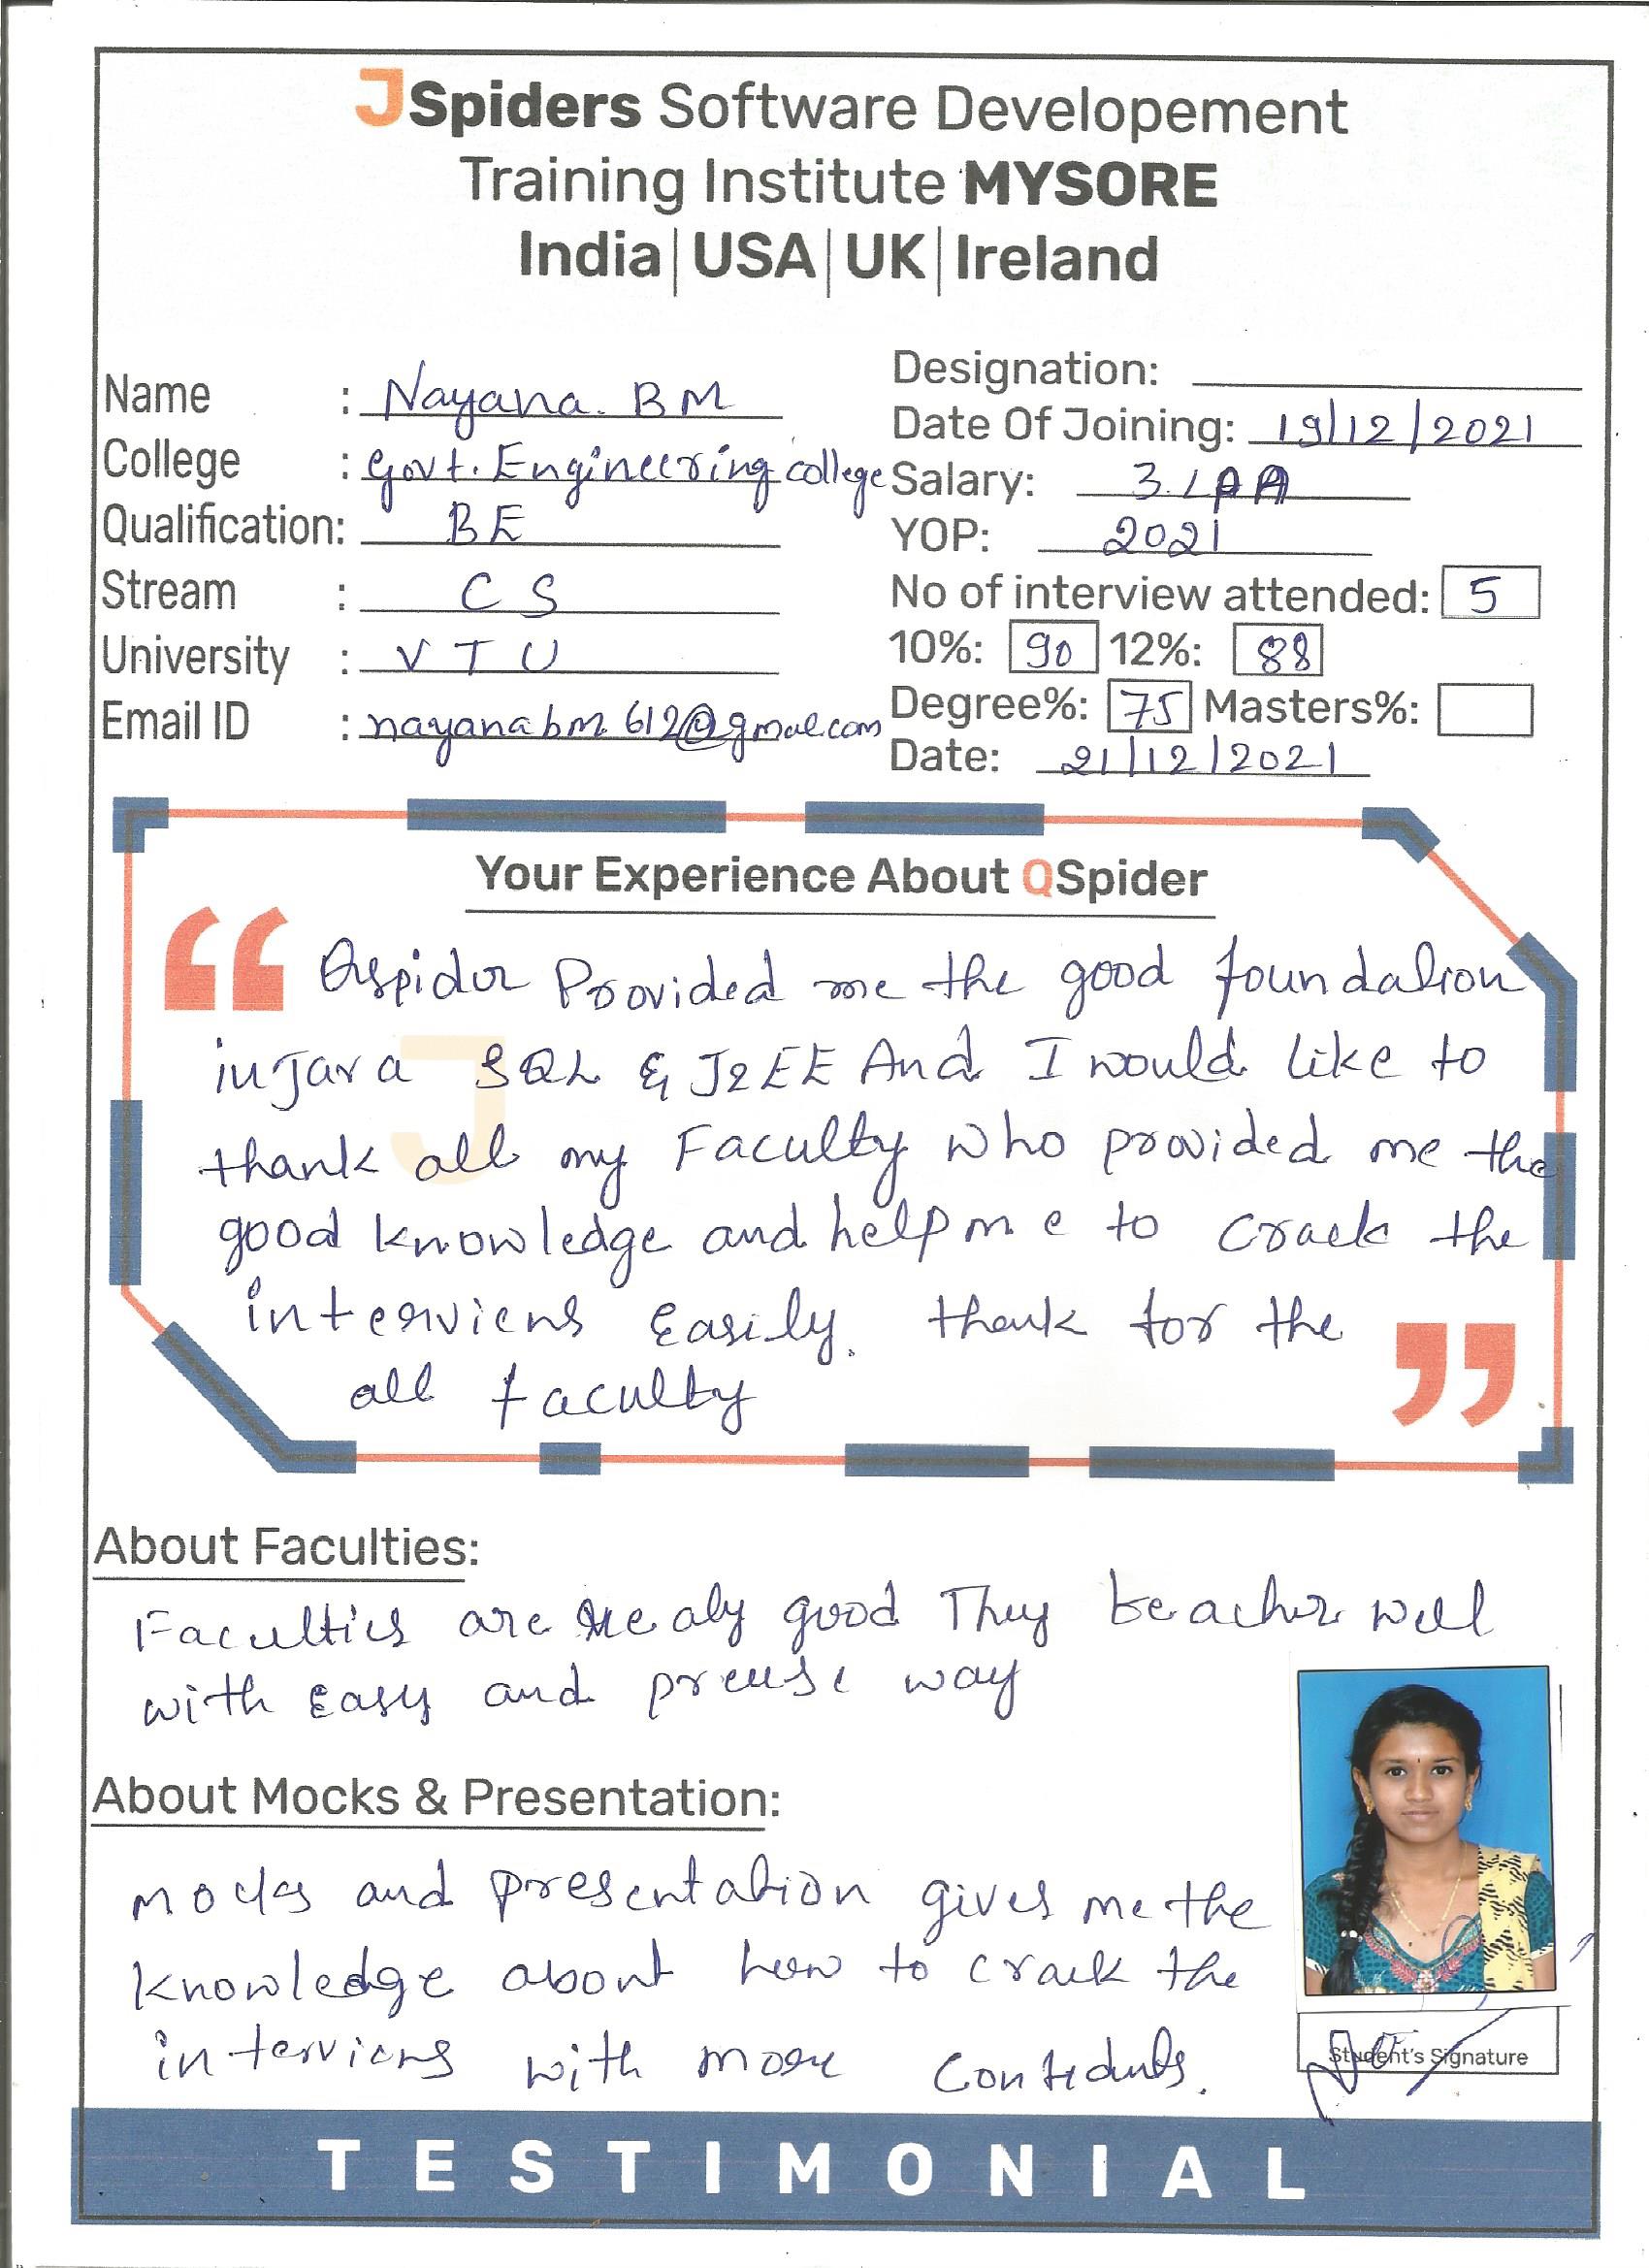 JSpiders Software Developement
Training Institute MYSORE
India|USA|UK|Ireland
Name : Nayana. BM
College : Govt. Engineering college
Qualification: BE
Stream : CS
University : VTU
Email ID : nayanabm612@gmal.com
Designation:
Date Of Joining: 19/12/2021
Salary: 3.LPA
YOP: 2021
No of interview attended: 5
10%: 90 12%: 88
Degree%: 75 Masters%:
Date: 21/12/2021
Your Experience About QSpider
“ Qspider Provided me the good foundation
in Java SQL & J2EE And I would like to
thank all my Faculty who provided me the
good knowledge and help me to crack the
interviews Easily. thank for the
all faculty ”
About Faculties:
Faculties are realy good They teacher well
with Easy and preuse way
About Mocks & Presentation:
mocks and presentation gives me the
knowledge about how to crack the
interviews with more
Student's Signature
TESTIMONIAL